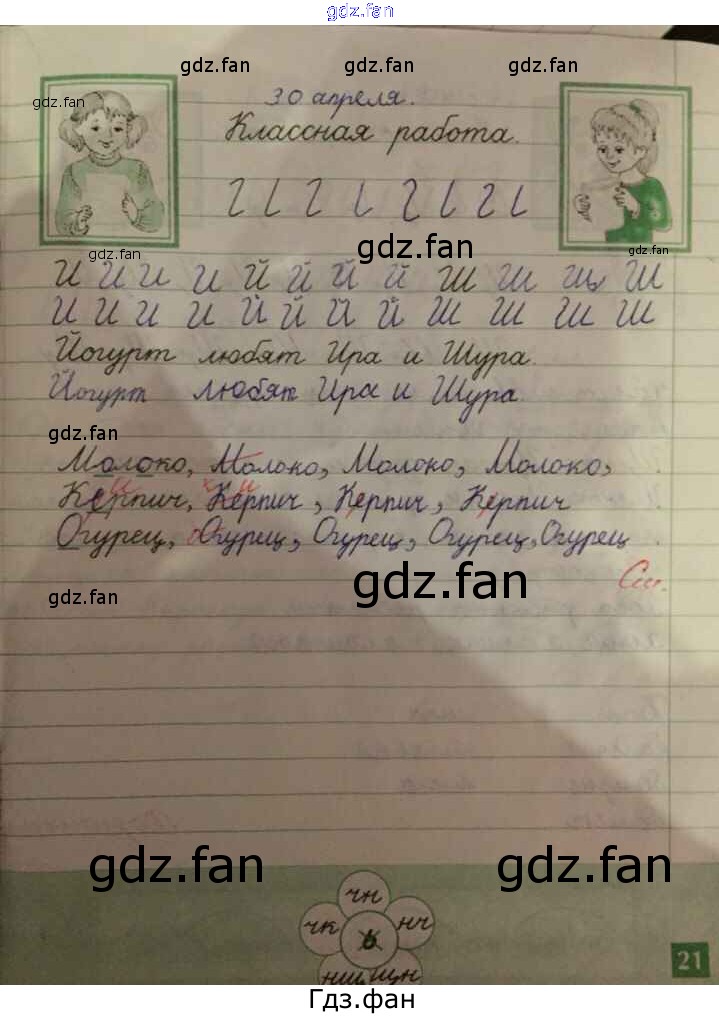 gdz.fan
gdz.fan gdz.fan gdz.fan
gdz.fan
30 апреля.
Классная работа.
gdz.fan
gdz.fan
gdz.fan
И И И И Й Й Й Й Ш Ш Щ Ш
И И И И Й Й Й Й Ш Ш Ш Ш
Йогурт любят Ира и Шура.
Йогурт любят Ира и Шура.
gdz.fan
Молоко, Молоко, Молоко, Молоко,
Керпич, Керпич, Керпич, Керпич
и и
Огурец, Огурец, Огурец, Огурец, Огурец
gdz.fan
gdz.fan
См.
gdz.fan gdz.fan
чн
чк ь нч
нщ щн
21
Гдз.фан